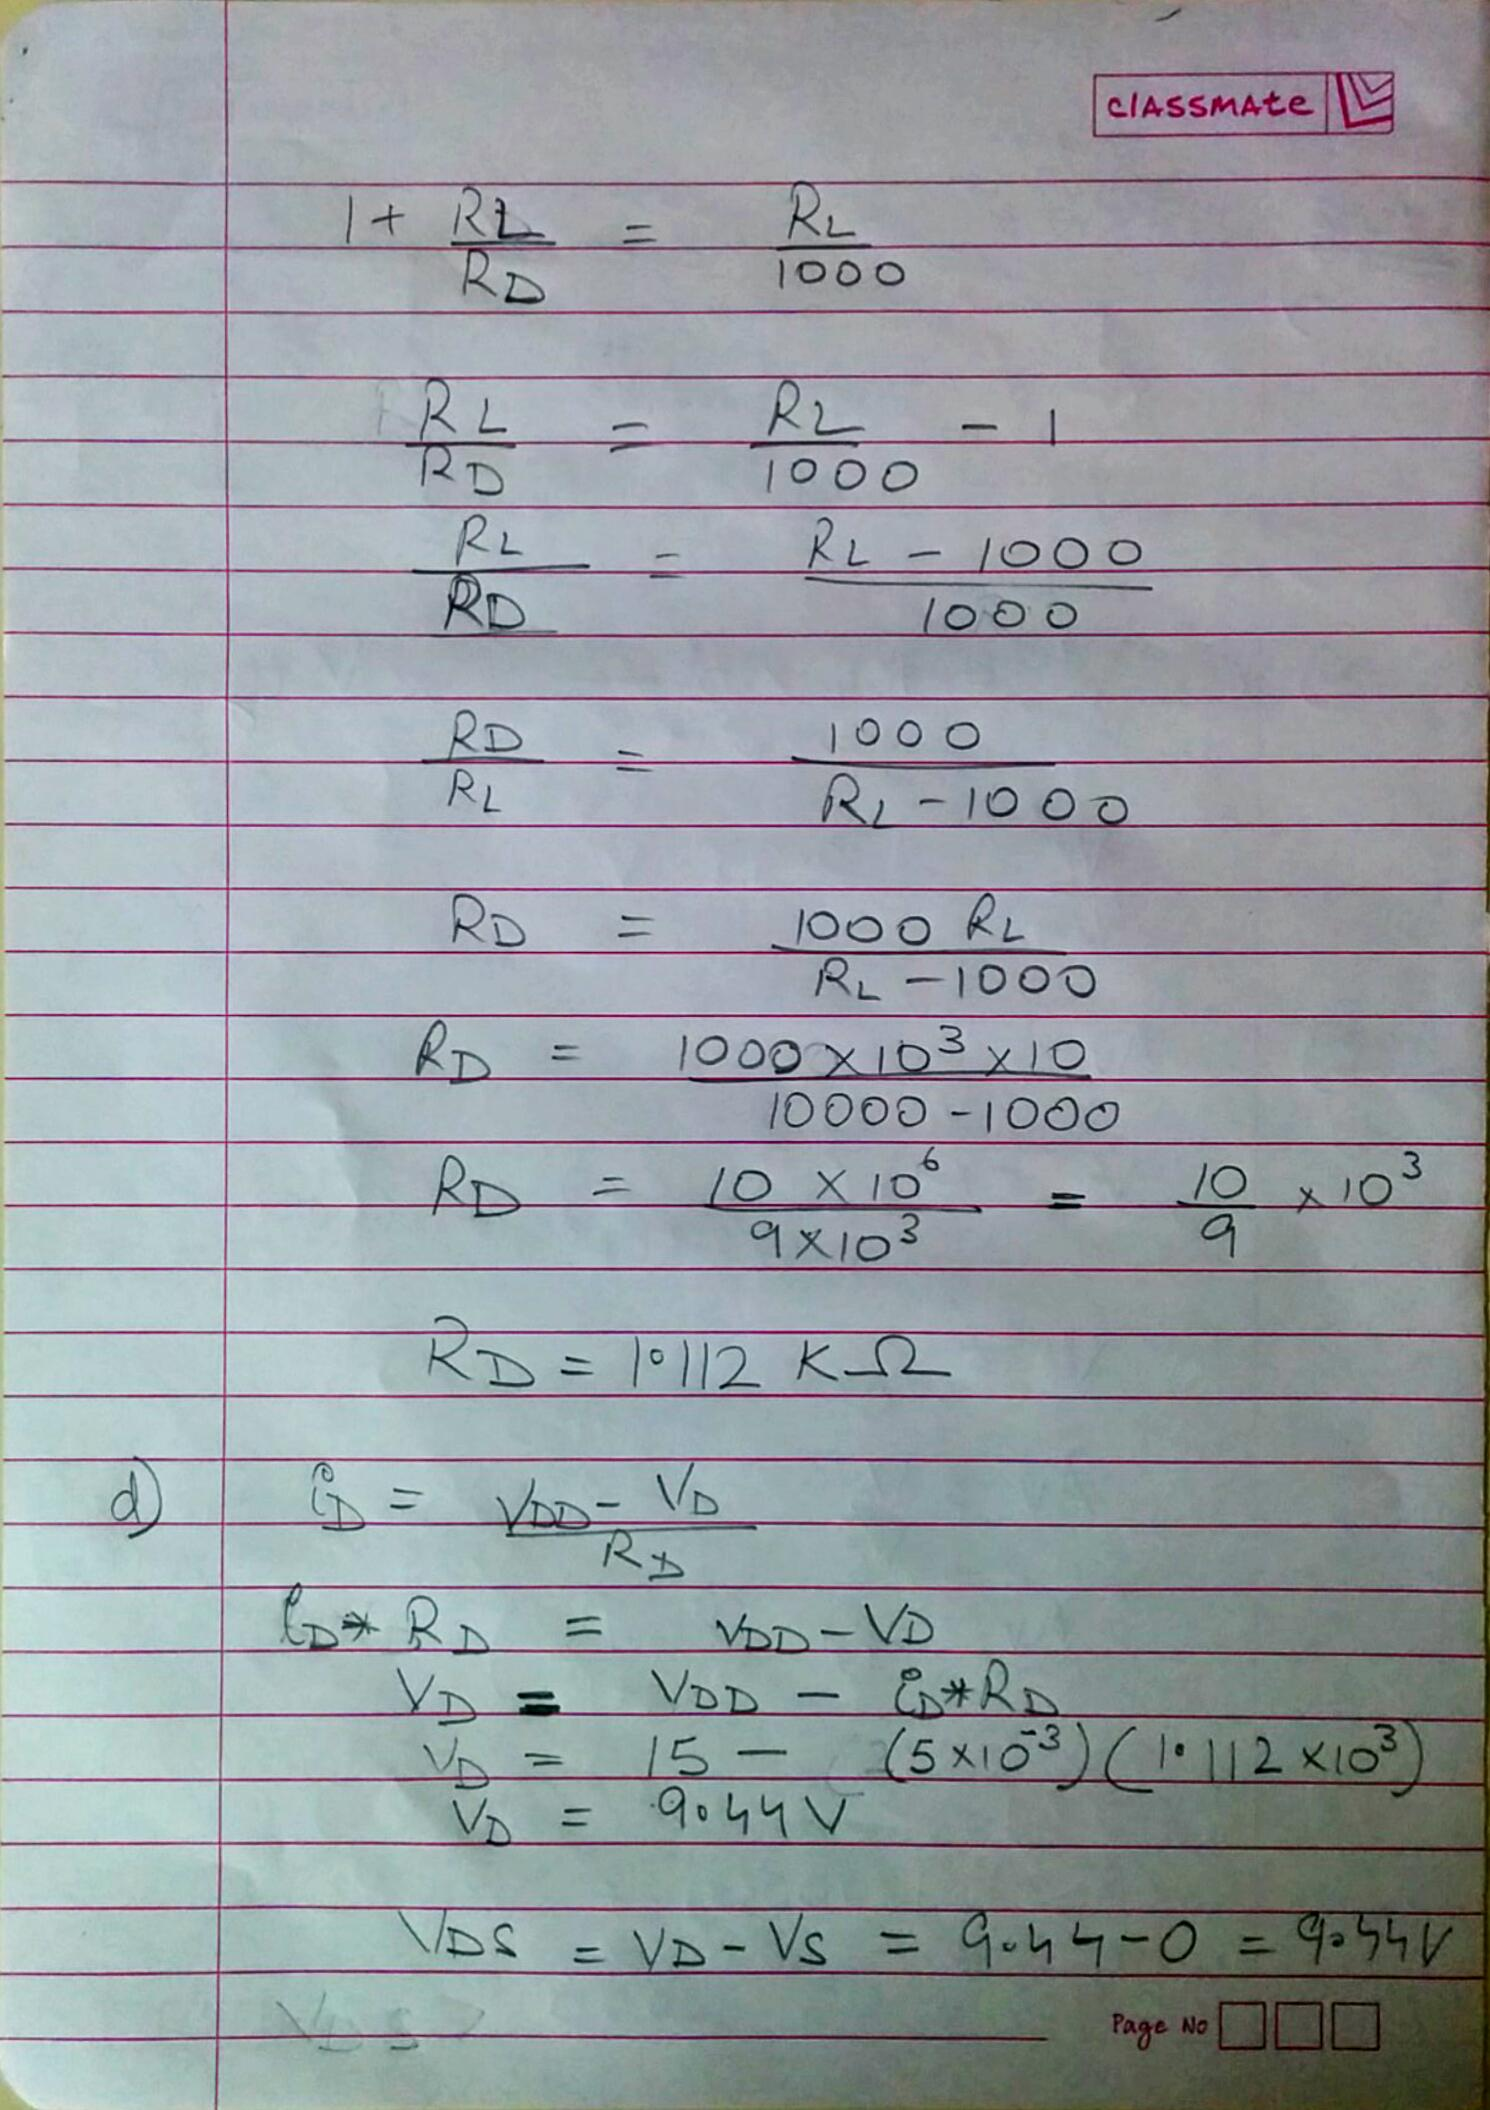 classmate
1 + RL/RD = RL/1000
RL/RD = RL/1000 - 1
RL/RD = (RL - 1000)/1000
RD/RL = 1000/(RL - 1000)
RD = 1000 RL/(RL - 1000)
RD = (1000 × 10³ × 10)/(10000 - 1000)
RD = (10 × 10⁶)/(9 × 10³) = 10/9 × 10³
RD = 1.112 KΩ
d) iD = (VDD - VD)/RD
iD * RD = VDD - VD
VD = VDD - iD * RD
VD = 15 - (5 × 10⁻³)(1.112 × 10³)
VD = 9.44 V
VDS = VD - VS = 9.44 - 0 = 9.44V
VDS
Page No